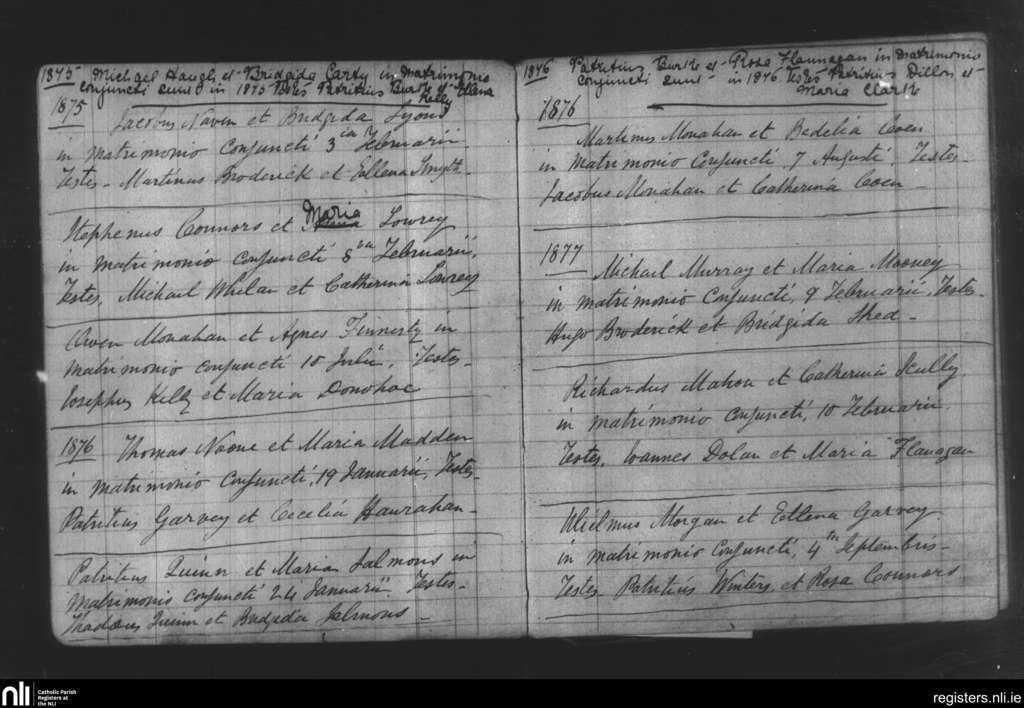 1875 Michael Haugh et Bridgida Carty in Matrimonio
conjuncti sunt in 1875 Testes Patritius Burke et Ellena
Kelly
1875
Jacobus Naven et Bridgida Lyons
in Matrimonio Conjuncti 3 in Februarii
Testes - Martinus Broderick et Ellena Smyth -
Stephenus Connors et Maria Lowrey
in Matrimonio conjuncti 8th Februarii,
Testes, Michael Whelan et Catherina Lowrey
Owen Monahan et Agnes Finnerty in
Matrimonio conjuncti 10 Julii, Testes -
Josephus Kelly et Maria Donohoe
1876 Thomas Noone et Maria Madden
in Matrimonio Conjuncti, 19 Januarii, Testes -
Patritius Garvey et Cecelia Hanrahan -
Patritius Quinn et Maria Salmons in
Matrimonio conjuncti 24 Januarii, Testes -
Thadeus Quinn et Bridgida Salmons -
1876 Patritius Burke et Rosa Flannagan in Matrimonio
conjuncti sunt in 1876. Testes Patritius Dillon et
Maria Clarke
1876
Martinus Monahan et Bedelia Coen
in Matrimonio Conjuncti, 7 Augusti, Testes -
Jacobus Monahan et Catherina Coen -
1877
Michael Murray et Maria Mooney
in Matrimonio Conjuncti, 9 Februarii, Testes -
Hugo Broderick et Bridgida Shed -
Richardus Mahon et Catherina Scully
in Matrimonio Conjuncti, 10 Februarii
Testes, Joannes Dolan et Maria Flanagan
Ulielmus Morgan et Ellena Garvey
in Matrimonio Conjuncti, 4th Septembris -
Testes Patritius Winters, et Rosa Connors
nli
Catholic Parish
Registers at
the NLI
registers.nli.ie